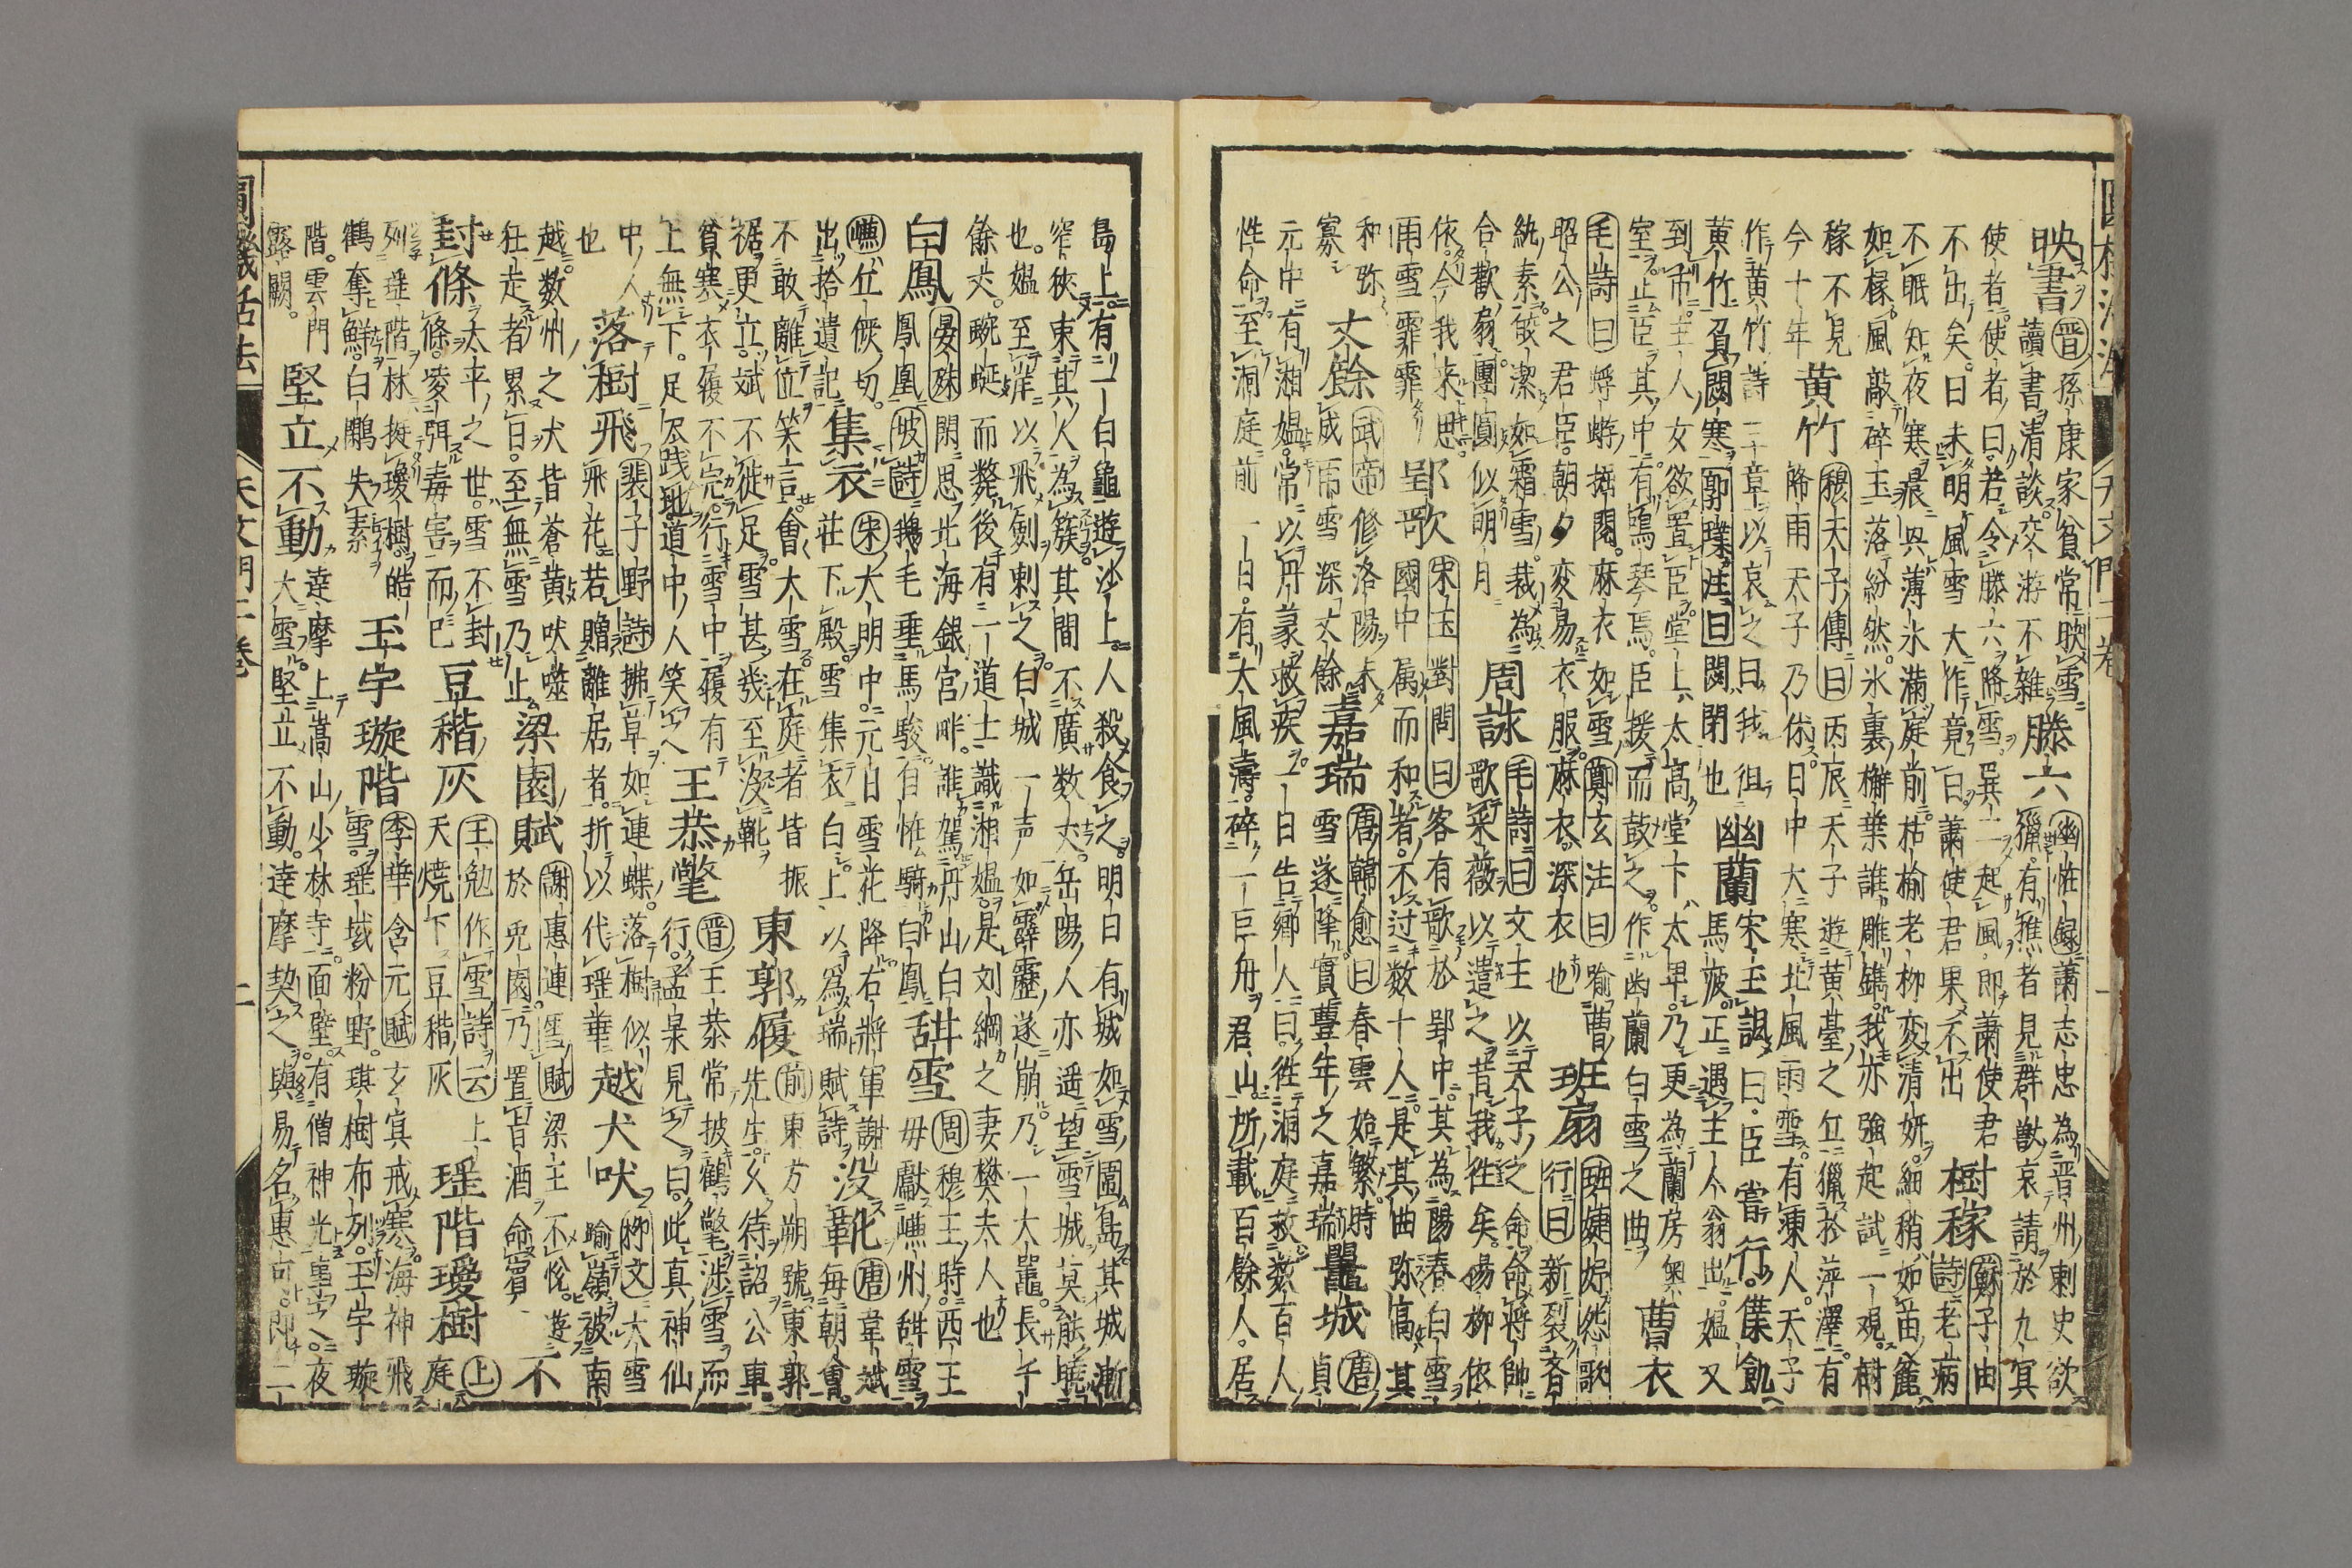 映書晋孫康家貧常映雪
讀書清談交游不雜滕六幽怪録蕭志忠為晋州刺史欲
獵有樵者見群獸哀請於九冥
使者使者曰若令滕六降雪巽二起風即蕭使君
不出矣日未明風雪大作竟日蕭使君果不出樹稼蘇子由
詩老病
不眠知夜寒晨興薄氷滿庭前枯榆老柳変清妍細稍如苗麄
如椽風敲碎玉落紛然氷裏檞葉誰雕鐫我亦強起試一覌樹
稼不見
今十年黄竹穆天子傳曰丙辰天子遊黄䑓之丘獵於萍澤有
隂雨天子乃休日中大寒北風雨雪有凍人天子
作黄竹詩三十章以哀之曰我徂
黄竹負閟寒郭璞注曰閟閉也幽蘭宋玉諷曰臣嘗行僕飢
馬疲正遇主人翁出媼又
到市主人女欲置臣堂上太高堂下太卑乃更為蘭房奥
室止臣其中有鳴琴焉臣援而鼓之作幽蘭白雪之曲曹衣
毛詩曰蜉蝣掘閲麻衣如雪鄭玄注曰喩曹
昭公之君臣朝夕変易衣服麻衣深衣也班扇班婕妤怨歌
行曰新裂齊
紈素皎潔如霜雪裁為
合歡扇團圓似明月周詠毛詩曰文王以天子之命命將帥
歌采薇以遣之昔我徃矣楊柳依
依今我来思
雨雪霏霏郢歌宋玉對問曰客有歌於郢中其為陽春白雪
國中属而和者不过数十人是其曲弥高其
和弥
寡丈餘武帝修洛陽未
成雨雪深丈餘嘉瑞唐韓愈曰春雲始繁時
雪遂降實豊年之嘉瑞鼉城唐貞
元中有湘媼常以丹篆救疾一日告郷人曰徃洞庭救数百人
性命至洞庭前一日有大風濤碎一巨舟君山所載百餘人居
島上有一白鼉遊沙上人殺食之明日有城如雪圍島其城漸
窄狹束其人為簇其間不廣数丈岳陽人亦遥望雪城莫能曉
也媼至岸以飛劍刺之白城一声如霹靂遂崩乃一大鼉長千
餘丈蜿蜒而斃後有一道士識湘媼是刘綱之妻樊夫人也
白鳳晏殊閑思北海銀宮畔誰駕丹山白
鳳凰坡詩鵝毛垂馬駿自怪騎白鳳甜雪周穆王時西王
母獻嵰州甜雪
嵰丘候切
出拾遺記集衣宋大明中元日雪花降右將軍謝
荘下殿雪集衣白上以為瑞賦詩没靴唐韋斌
每朝會
不敢離位笑言會大雪在庭者皆振
裾更立斌不徙足雪甚幾至没靴東郭履前東方朔號東郭
先生乆待詔公車
貧寒衣履不完行雪中履有
上無下足尽践地道中人笑之王恭氅晋王恭常披鶴氅渉雪而
行孟杲見之曰此真神仙
中人
也落樹飛裴子野詩拂草如連蝶落樹似
飛花若贈離居者折以代瑶華越犬吠柳文大雪
喩嶺被南
越数州之犬皆蒼黄吠噬
狂走者累日至無雪乃止梁園賦謝惠連雪賦梁王不悦遊
於兎園乃置旨酒命賓不
封條太平之世雪不封
條凌弭毒害而已豆稭灰王勉作雪詩云上
天燒下豆稭灰瑶階瓊樹上
庭
列瑶階林挺瓊樹皓
鶴奪鮮白鷳失素玉宇璇階李華含元賦玄冥戒寒海神飛
雪瑶城粉野琪樹布列玉宇璇
階雲門
露闕堅立不動達摩上嵩山少林寺面壁有僧神光事之夜
大雪堅立不動達摩契之與易名惠可即二
圓機活法
天文門